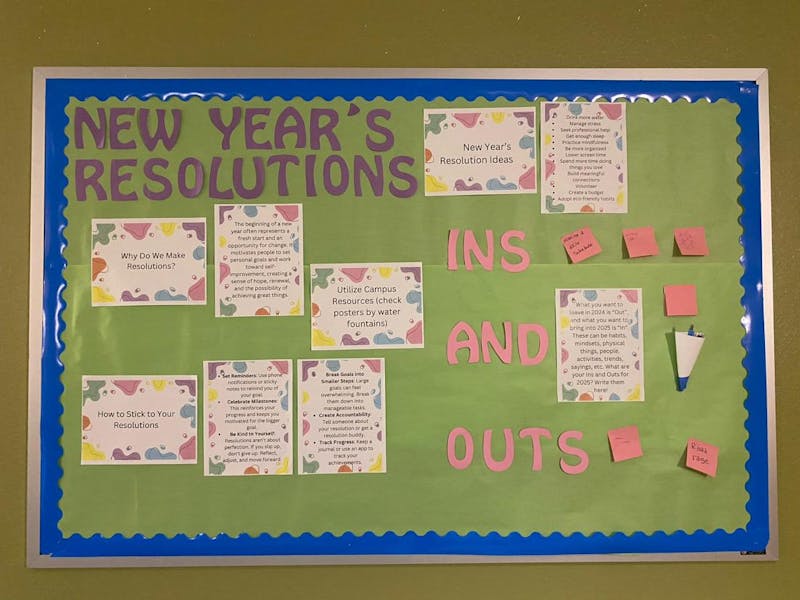 NEW YEAR'S
RESOLUTIONS
New Year's
Resolution Ideas
Drink more water
Manage stress
Seek professional help
Get enough sleep
Practice mindfulness
Be more organized
Lower screen time
Spend more time doing
things you love
Build meaningful
connections
Volunteer
Create a budget
Adopt eco friendly habits
Why Do We Make
Resolutions?
The beginning of a new
year often represents a
fresh start and an
opportunity for change. It
motivates people to set
personal goals and work
toward self-
improvement, creating a
sense of hope, renewal,
and the possibility of
achieving great things.
Utilize Campus
Resources (check
posters by water
fountains)
How to Stick to Your
Resolutions
Set Reminders: Use phone
notifications or sticky
notes to remind you of
your goal.
Celebrate Milestones:
This reinforces your
progress and keeps you
motivated for the bigger
goal.
Be Kind to Yourself:
Resolutions aren't about
perfection. If you slip up,
don't give up. Reflect,
adjust, and move forward
Break Goals into
Smaller Steps: Large
goals can feel
overwhelming. Break
them down into
manageable tasks.
Create Accountability:
Tell someone about
your resolution or get a
resolution buddy.
Track Progress: Keep a
journal or use an app to
track your
achievements.
INS
AND
OUTS
What you want to
leave in 2024 is "Out",
and what you want to
bring into 2025 is "In"
These can be habits,
mindsets, physical
things, people,
activities, trends,
sayings, etc. What are
your Ins and Outs for
2025? Write them
here!
Road
rage